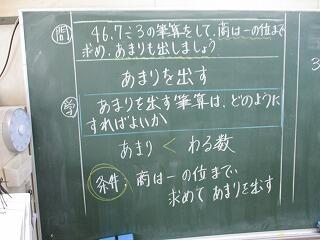 問 46.7÷3の筆算をして、商は一の位まで
求め、あまりも出しましょう
あまりを出す
学 あまりを出す筆算は、どのように
すればよいか
あまり < わる数
条件; 商は一の位まで、
求めて あまりを出す
3